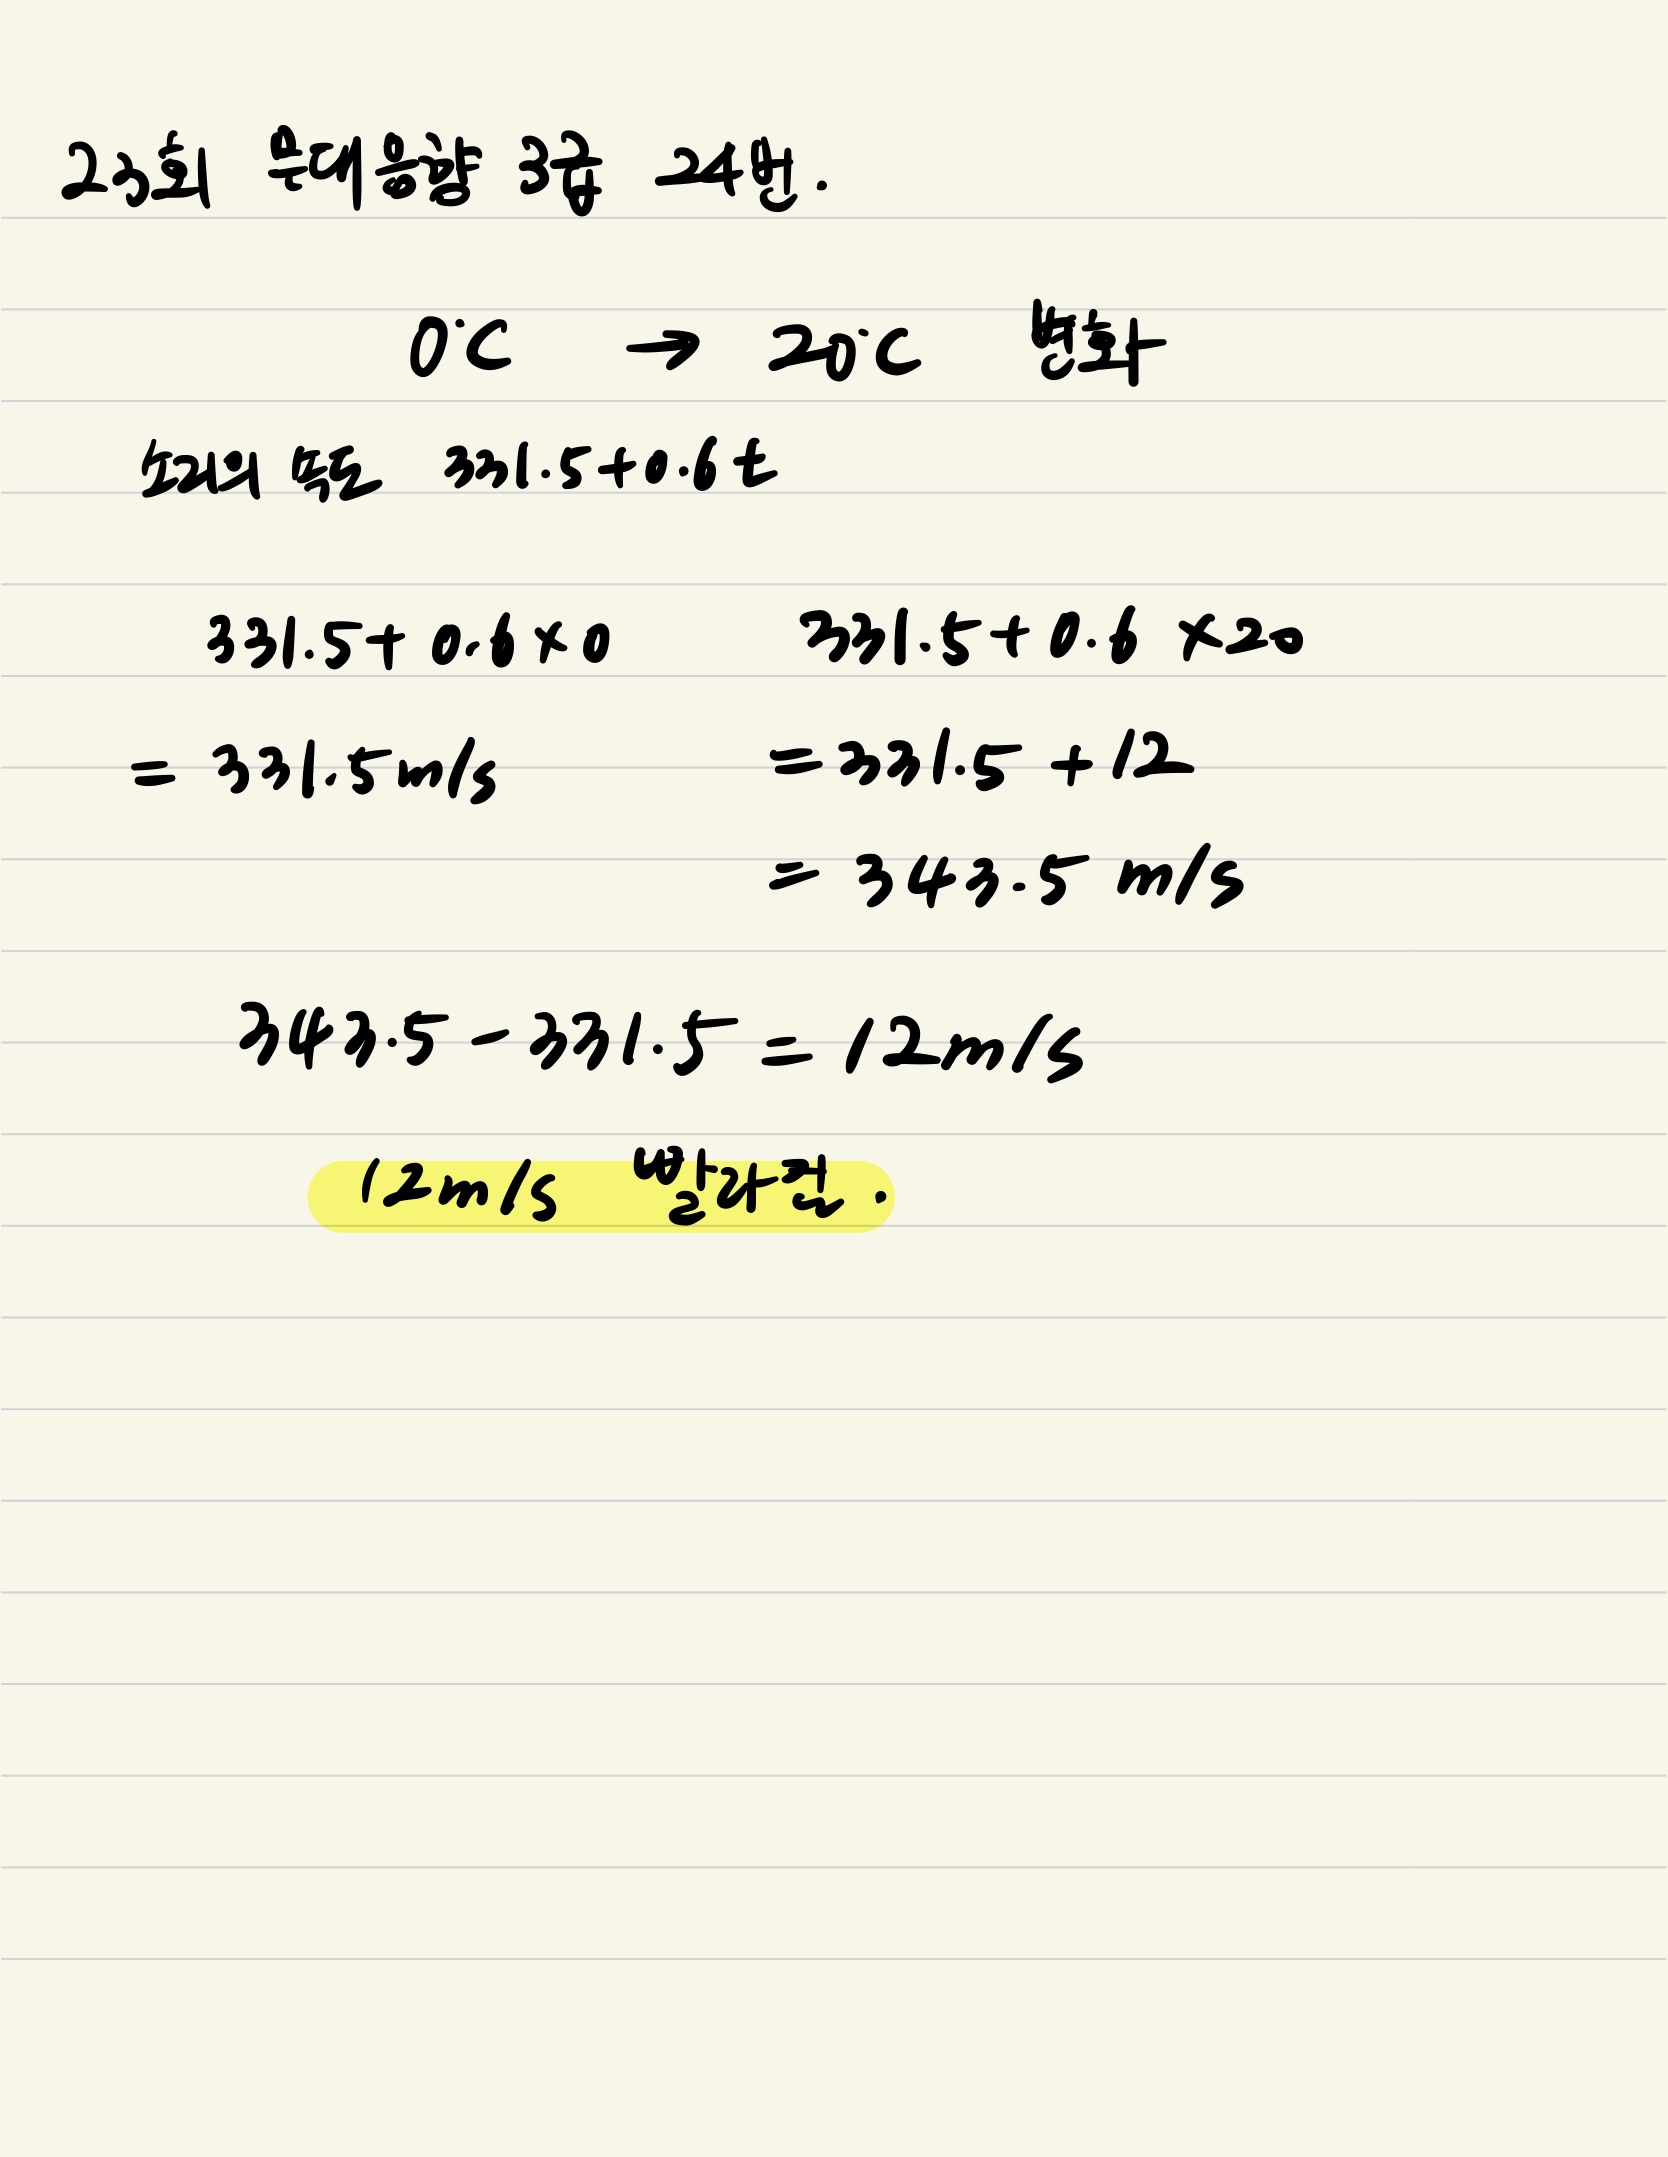 23회 무대음향 3급 24번.
0°C → 20°C 변화
소리의 속도 331.5+0.6t
331.5+0.6×0 331.5+0.6×20
= 331.5m/s =331.5+12
= 343.5 m/s
343.5-331.5=12m/s
12m/s 빨라진.